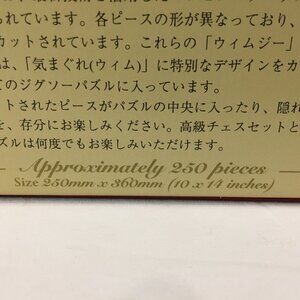 られています。各ピースの形が異なっており、
カットされています。これらの「ウィムジー」
は、「気まぐれ(ウィム)」に特別なデザインをカ
てのジグソーパズルに入っています。
ットされたピースがパズルの中央に入ったり、隠れ
を、存分にお楽しみください。高級チェスセットと
ズルは何度でもお楽しみいただけます。
Approximately 250 pieces
Size 250mm x 360mm (10 x 14 inches)